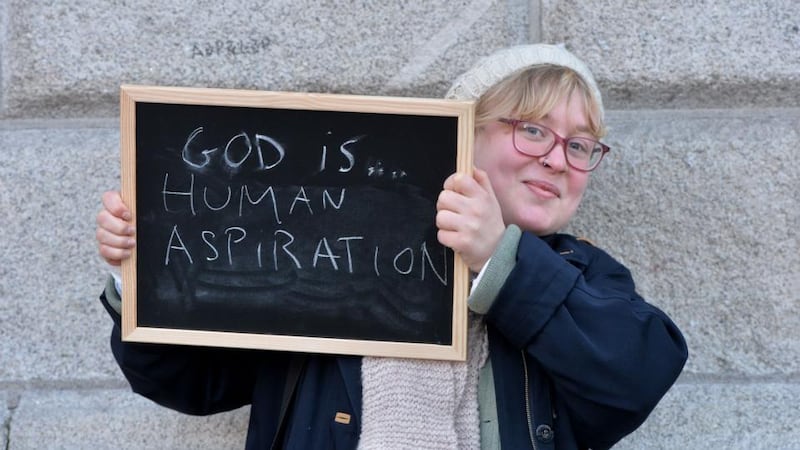 GOD iS...
HUMAN
ASPiRATiON